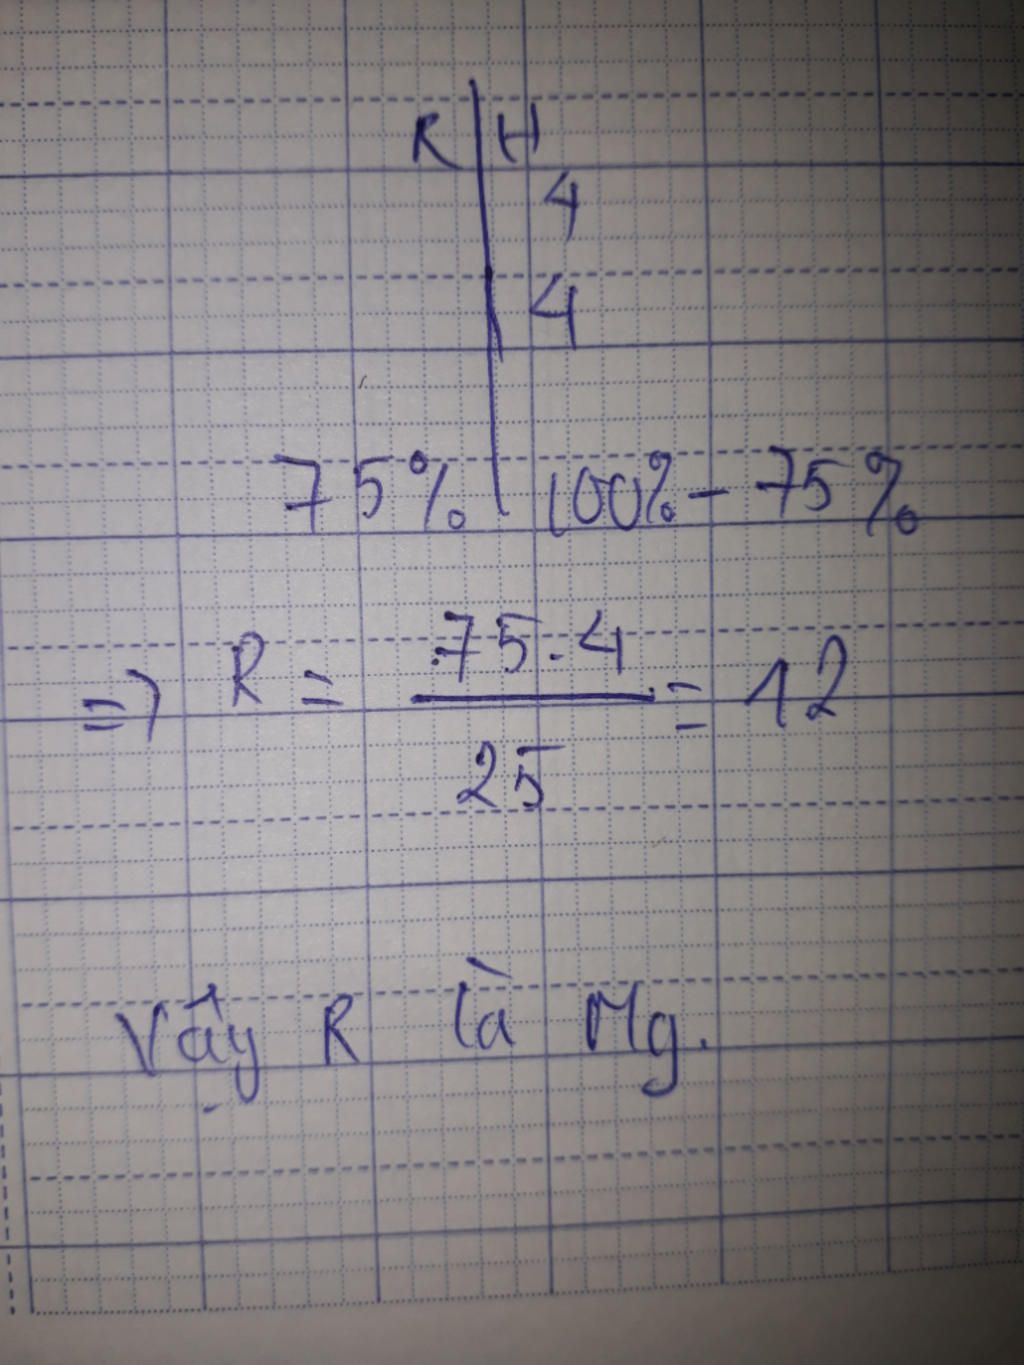 R | H
4
4
75% | 100% - 75%
=> R = 75.4 / 25 = 12
Vậy R là Mg.